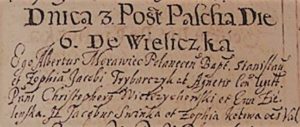 Dnica 3. Post Pascha Die
6. De Wieliczka
Ego Albertus Morawiec Bapt. Stanislau
et Zophia Jacobi Trybarczyk et Agnetis Con
Pani Christophory et Ewa
Et Jacobus Swinka et Zophia